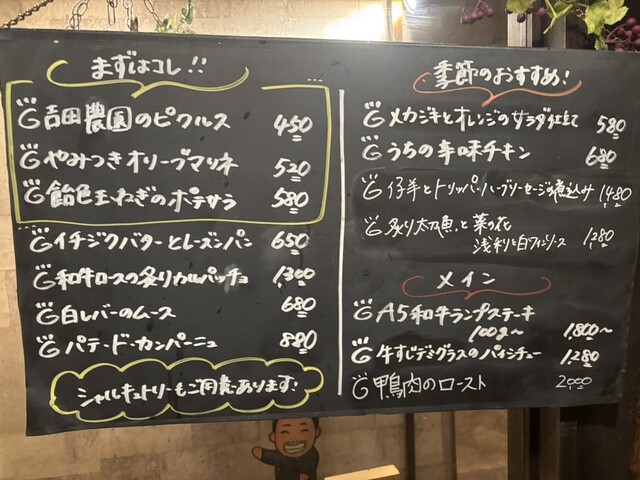 まずはコレ!!
吉田農園のピクルス 450
やみつきオリーブマリネ 520
飴色玉ねぎのポテサラ 580
イチジクバターとレーズンパン 650
和牛ロースの炙りカルパッチョ 1,300
白レバーのムース 680
パテ・ド・カンパーニュ 880
シャルキュトリーもご用意あります!
季節のおすすめ!
メカジキとオレンジのサラダ仕立て 580
うちの辛味チキン 680
仔羊とトリッパ・ハーブソーセージの煮込み 1,480
炙り太刀魚と菜の花
浅利と白ワインソース 1,280
メイン
A5和牛ランプステーキ
100g~ 1,800~
牛すじデミグラスのパイシチュー 1,280
鴨肉のロースト 2,000